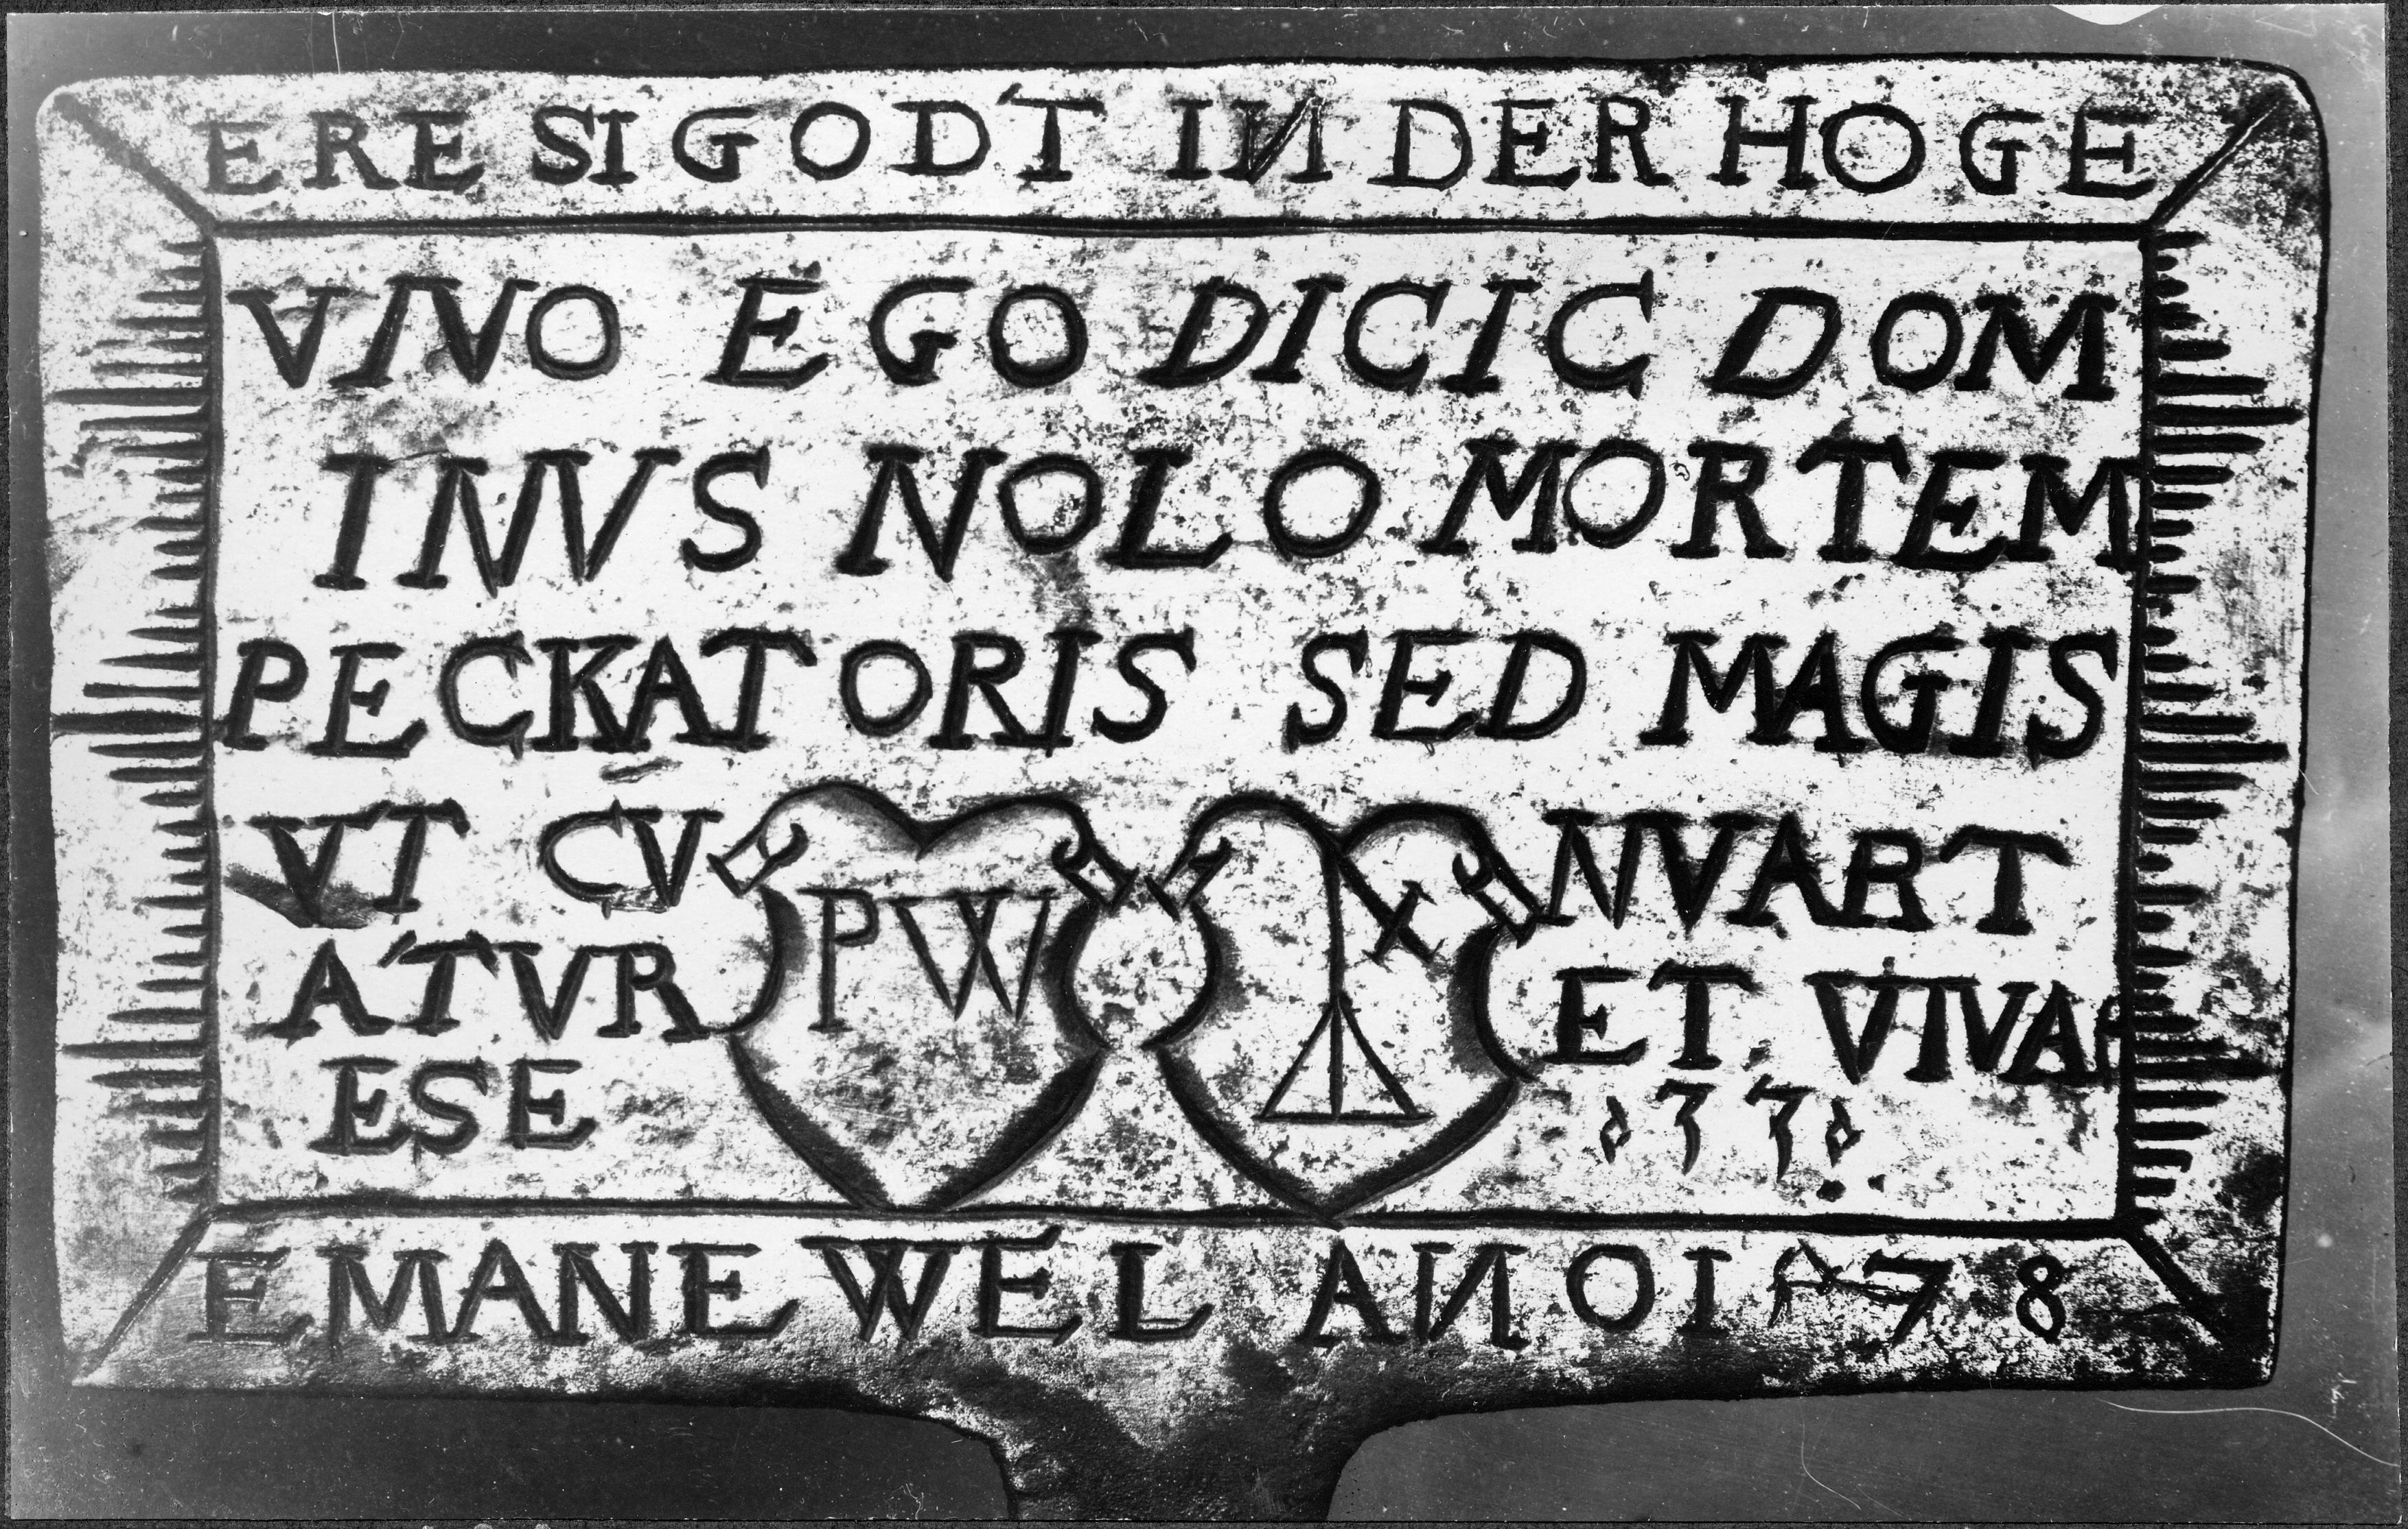 ERE SI GODT IN DER HOGE
VIVO EGO DICIC DOM
INVS NOLO MORTEM
PECKATORIS SED MAGIS
VT CV NVART
PW
ATVR ET VIVAT
ESE
EMANEWEL ANO 1 78